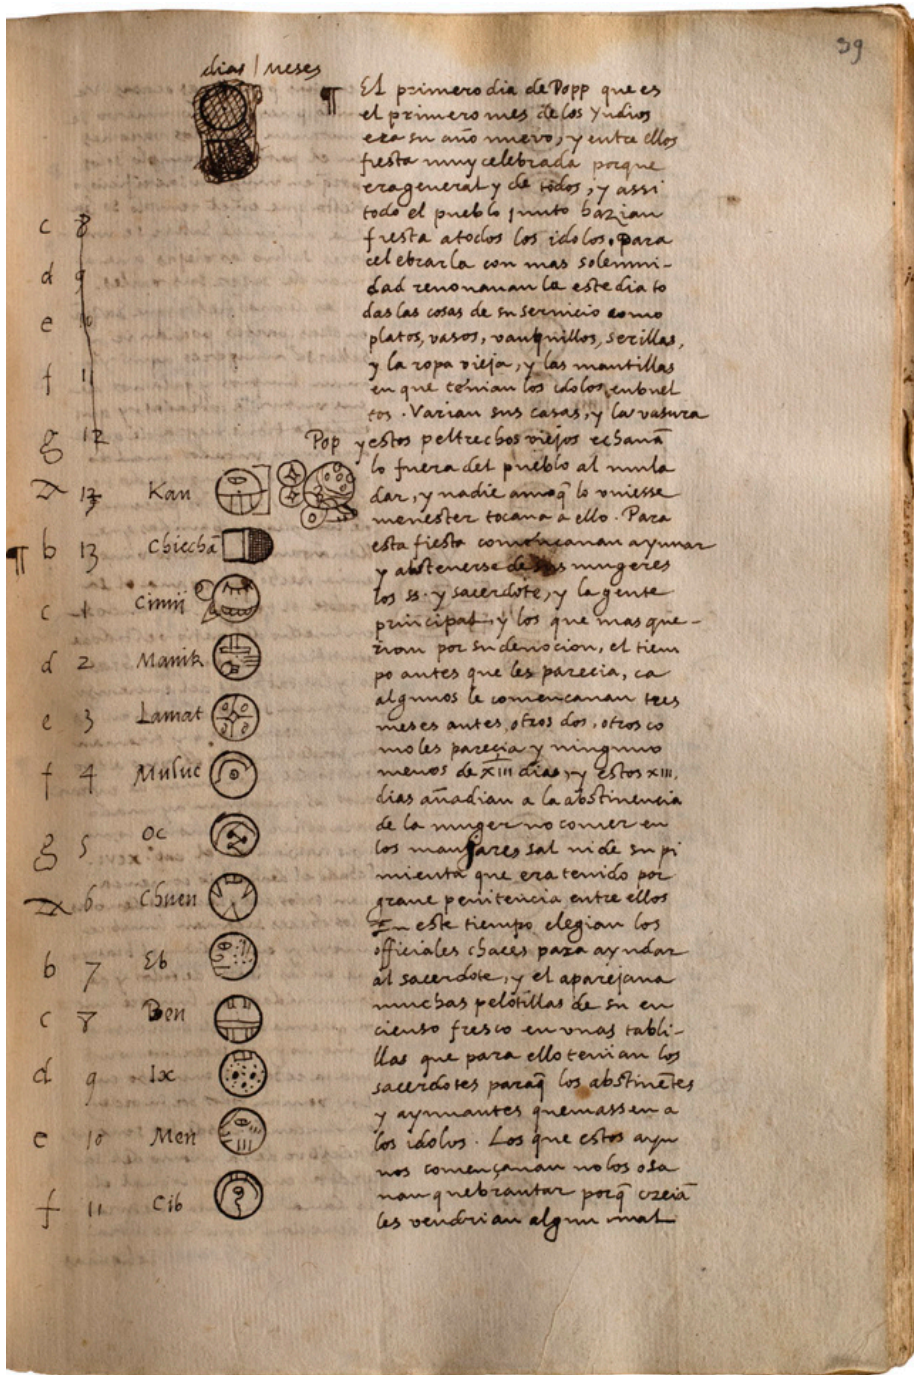 39
dias / Meses
¶ El primero dia de Popp que es
el primero mes de los yndios
era su año nuevo, y entre ellos
fiesta muy celebrada porque
era general y de todos, y assi
todo el pueblo junto hazian
fiesta a todos los idolos. para
celebrarla con mas solemni-
dad renovauan la este dia to
das las cosas de su seruicio como
platos, vasos, vanquillos, serillas,
y la ropa vieja, y las mantillas
en que tenian los idolos enbuel
tos. Varian sus casas, y la vasura
y estos peltrechos viejos echauā
lo fuera del pueblo al mula
dar, y nadie a moq̄ lo vuiesse
menester tocaua a ello. Para
esta fiesta començauan ayunar
y abstenerse de sus mugeres
los ss. y sacerdote, y la gente
principal, y los que mas que-
rian por su deuocion, el tiem
po antes que les parecia, ca
algunos le començauan tres
meses antes, otros dos, otros co
mo les parecia y ninguno
menos de XIII dias, y estos XIII.
dias añadian a la abstinencia
de la muger no comer en
los manjares sal ni de su pi
mienta que era tenido por
graue penitencia entre ellos
En este tiempo elegian los
officiales chaces para ayudar
al sacerdote, y el aparejaua
muchas pelotillas de su en
cienso fresco en vnas tabli-
llas que para ello tenian los
sacerdotes paraq̄ los abstinētes
y ayunantes quemassen a
los idolos. Los que estos ayu
nos començauan no los osa
uan quebrantar porq̄ creiā
les vendrian algun mal
c 8
d 9
e 10
f 11
g 12
Pop
13 Kan
¶ b 13 Chicchā
c 1 Cimij
d 2 Manik
e 3 Lamat
f 4 Muluc
g 5 Oc
6 Chuen
b 7 Eb
c 8 Ben
d 9 Ix
e 10 Men
f 11 Cib